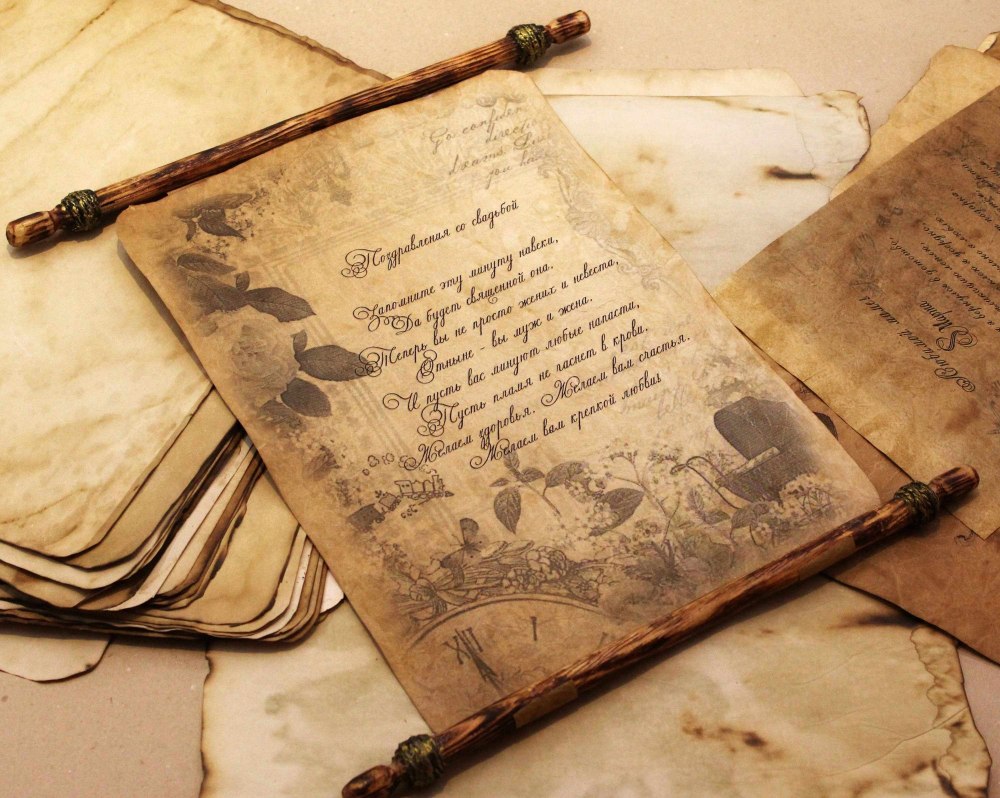 Go confident
directio
dreams Live
you ha
Поздравления со свадьбой
Запомните эту минуту навеки,
Да будет священной она.
Теперь вы не просто жених и невеста,
Отныне - вы муж и жена.
И пусть вас минуют любые напасти,
Пусть пламя не гаснет в крови.
Желаем здоровья. Желаем вам счастья.
Желаем вам крепкой любви!
XII
I
Марта